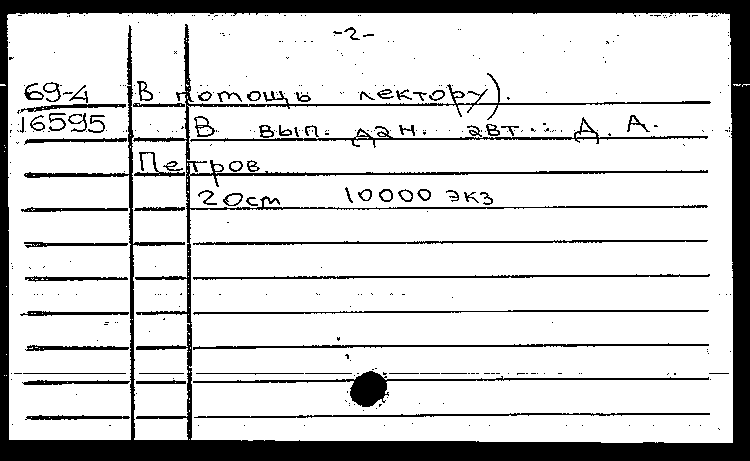 -2-
69-4 В помощь лектору).
16595 В вып. дан. авт.: Д. А.
Петров.
20 см 10000 экз